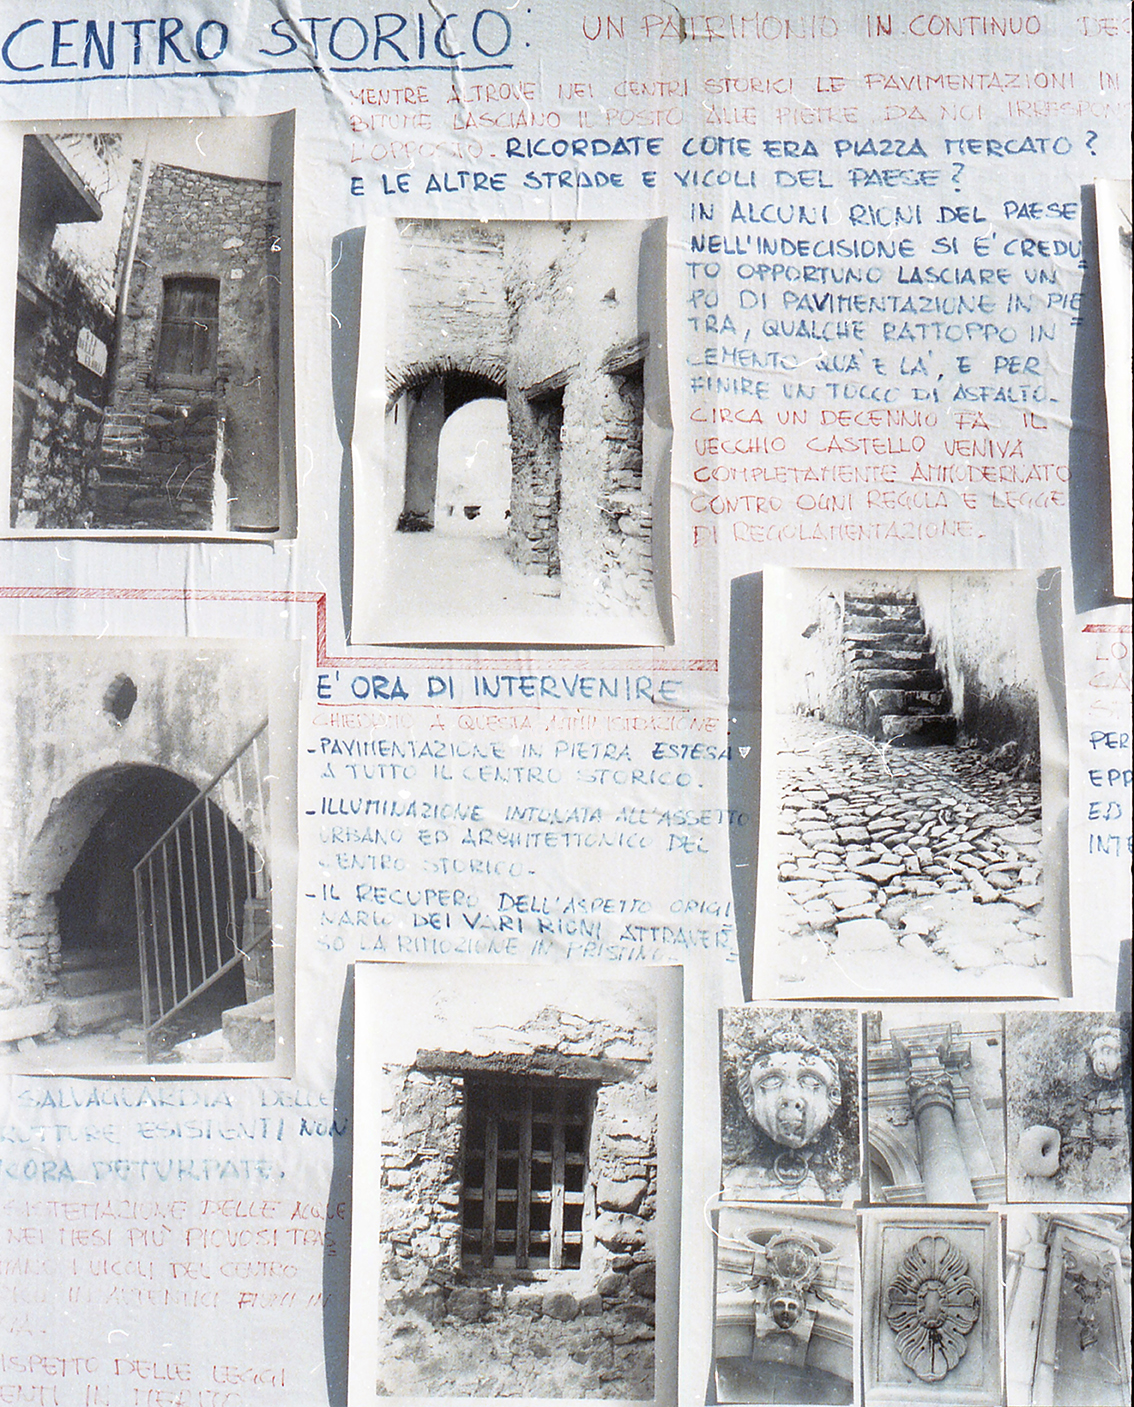 CENTRO STORICO:
UN PATRIMONIO IN CONTINUO DEG
MENTRE ALTROVE NEI CENTRI STORICI LE PAVIMENTAZIONI IN
BITUME LASCIANO IL POSTO ALLE PIETRE DA NOI IRRESPON
L'OPPOSTO. RICORDATE COME ERA PIAZZA MERCATO?
E LE ALTRE STRADE E VICOLI DEL PAESE?
IN ALCUNI RIONI DEL PAESE
NELL'INDECISIONE SI E' CREDU=
TO OPPORTUNO LASCIARE UN
PO DI PAVIMENTAZIONE IN PIE=
TRA, QUALCHE RATTOPPO IN
CEMENTO QUA' E LA', E PER
FINIRE UN TOCCO DI ASFALTO.
CIRCA UN DECENNIO FA IL
VECCHIO CASTELLO VENIVA
COMPLETAMENTE AMMODERNATO
CONTRO OGNI REGOLA E LEGGE
DI REGOLAMENTAZIONE.
E' ORA DI INTERVENIRE
CHIEDIAMO A QUESTA AMMINISTRAZIONE
-PAVIMENTAZIONE IN PIETRA ESTESA
A TUTTO IL CENTRO STORICO.
-ILLUMINAZIONE INTONATA ALL'ASSETTO
URBANO ED ARCHITETTONICO DEL
CENTRO STORICO.
-IL RECUPERO DELL'ASPETTO ORIGI=
NARIO DEI VARI RIONI ATTRAVER=
SO LA RIMOZIONE IN PRISTINO.
SALVAGUARDIA DELLE
RUTTURE ESISTENTI NON
CORA DETURPATE.
SISTEMAZIONE DELLE ACQUE
NEI MESI PIÙ PIOVOSI TRAS=
MANO I VICOLI DEL CENTRO
IN AUTENTICI FIUMI IN
ISPETTO DELLE LEGGI
ENTI IN MERITO
LO
CA
PER
EPP
ED
INTE